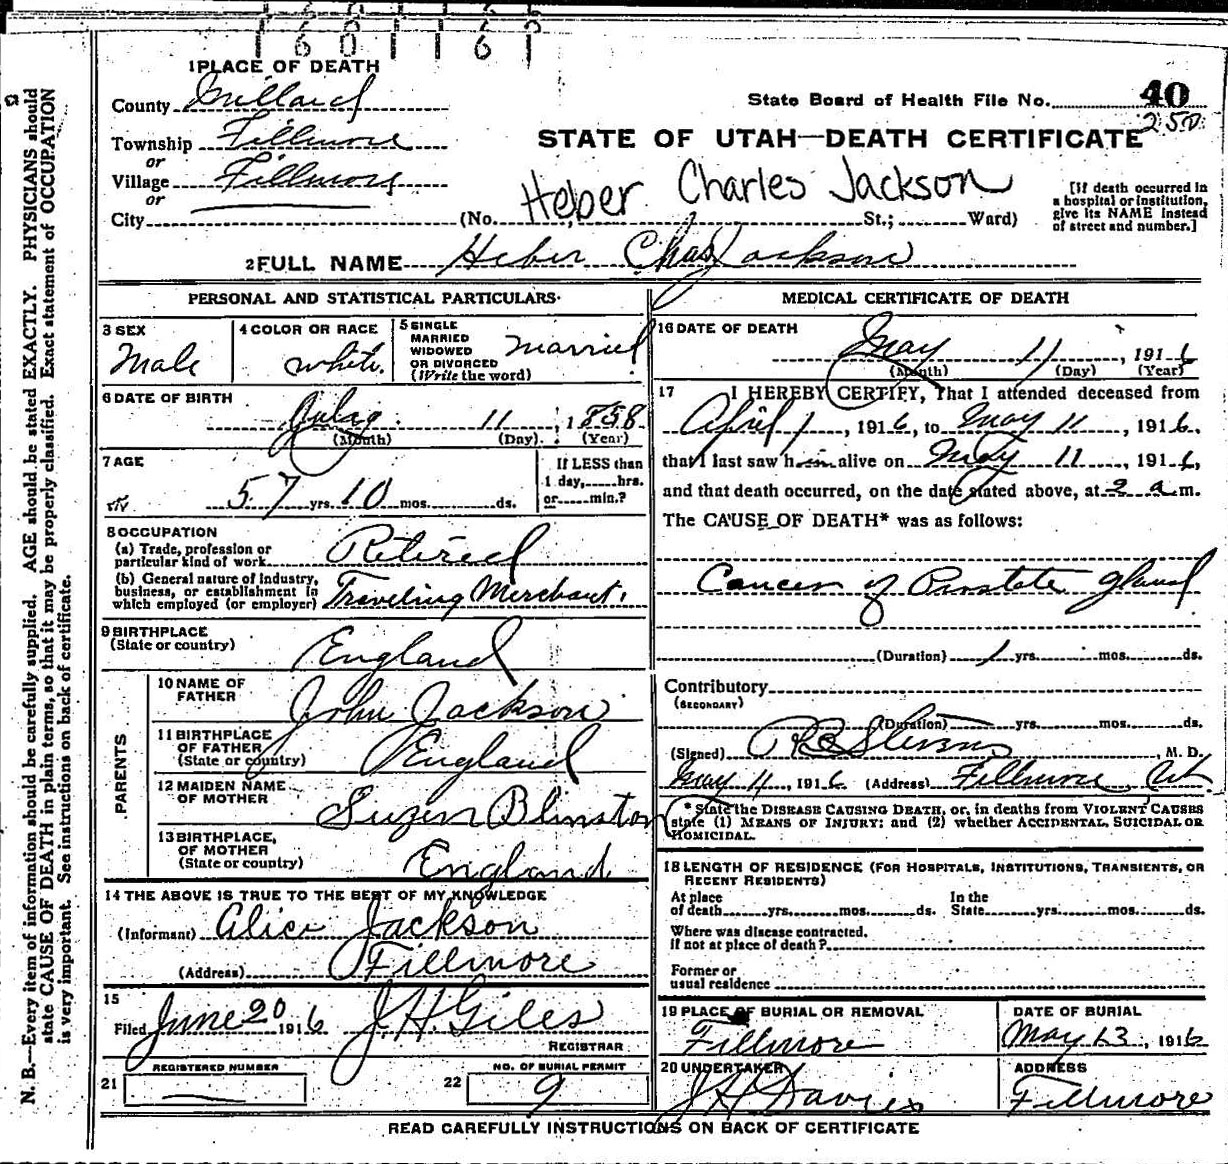 1601161
1 PLACE OF DEATH
County Millard
State Board of Health File No. 40
250
Township Fillmore
or
STATE OF UTAH—DEATH CERTIFICATE
Village Fillmore
or
Heber Charles Jackson
City (No. St.; Ward)
[If death occurred in
a hospital or institution,
give its NAME instead
of street and number.]
2 FULL NAME Heber Chas Jackson
PERSONAL AND STATISTICAL PARTICULARS
3 SEX
Male
4 COLOR OR RACE
white.
5 SINGLE
MARRIED
WIDOWED
OR DIVORCED
(Write the word)
married
6 DATE OF BIRTH
July 11, 1858
(Month) (Day) (Year)
7 AGE
57 yrs. 10 mos. ds.
If LESS than
1 day, hrs.
or min.?
8 OCCUPATION
(a) Trade, profession or
particular kind of work Retired
(b) General nature of industry,
business, or establishment in
which employed (or employer) Traveling Merchant.
9 BIRTHPLACE
(State or country)
England
PARENTS
10 NAME OF
FATHER
John Jackson
11 BIRTHPLACE
OF FATHER
(State or country)
England
12 MAIDEN NAME
OF MOTHER
Suzen Blinston
13 BIRTHPLACE
OF MOTHER
(State or country)
England.
14 THE ABOVE IS TRUE TO THE BEST OF MY KNOWLEDGE
(Informant) Alice Jackson
(Address) Fillmore
15
Filed June 20 1916 J.H. Giles
REGISTRAR
REGISTERED NUMBER
21
NO. OF BURIAL PERMIT
22 9
MEDICAL CERTIFICATE OF DEATH
16 DATE OF DEATH
May 11, 1916
(Month) (Day) (Year)
17 I HEREBY CERTIFY, That I attended deceased from
April 1, 1916, to May 11, 1916.
that I last saw him alive on May 11, 1916,
and that death occurred, on the date stated above, at 2 a.m.
The CAUSE OF DEATH* was as follows:
Cancer of Prostate gland
(Duration) 1 yrs. mos. ds.
Contributory
(SECONDARY)
(Duration) yrs. mos. ds.
(Signed) Stevens, M. D.
May 11, 1916 (Address) Fillmore Ut
* State the DISEASE CAUSING DEATH, or, in deaths from VIOLENT CAUSES
state (1) MEANS OF INJURY; and (2) whether ACCIDENTAL, SUICIDAL OR
HOMICIDAL.
18 LENGTH OF RESIDENCE (FOR HOSPITALS, INSTITUTIONS, TRANSIENTS, OR
RECENT RESIDENTS)
At place
of death yrs. mos. ds.
In the
State yrs. mos. ds.
Where was disease contracted.
If not at place of death?
Former or
usual residence
19 PLACE OF BURIAL OR REMOVAL
Fillmore
DATE OF BURIAL
May 13, 1916
20 UNDERTAKER
J H Davies
ADDRESS
Fillmore
READ CAREFULLY INSTRUCTIONS ON BACK OF CERTIFICATE
N. B.—Every item of information should be carefully supplied. AGE should be stated EXACTLY. PHYSICIANS should
state CAUSE OF DEATH in plain terms, so that it may be properly classified. Exact statement of OCCUPATION
is very important. See instructions on back of certificate.